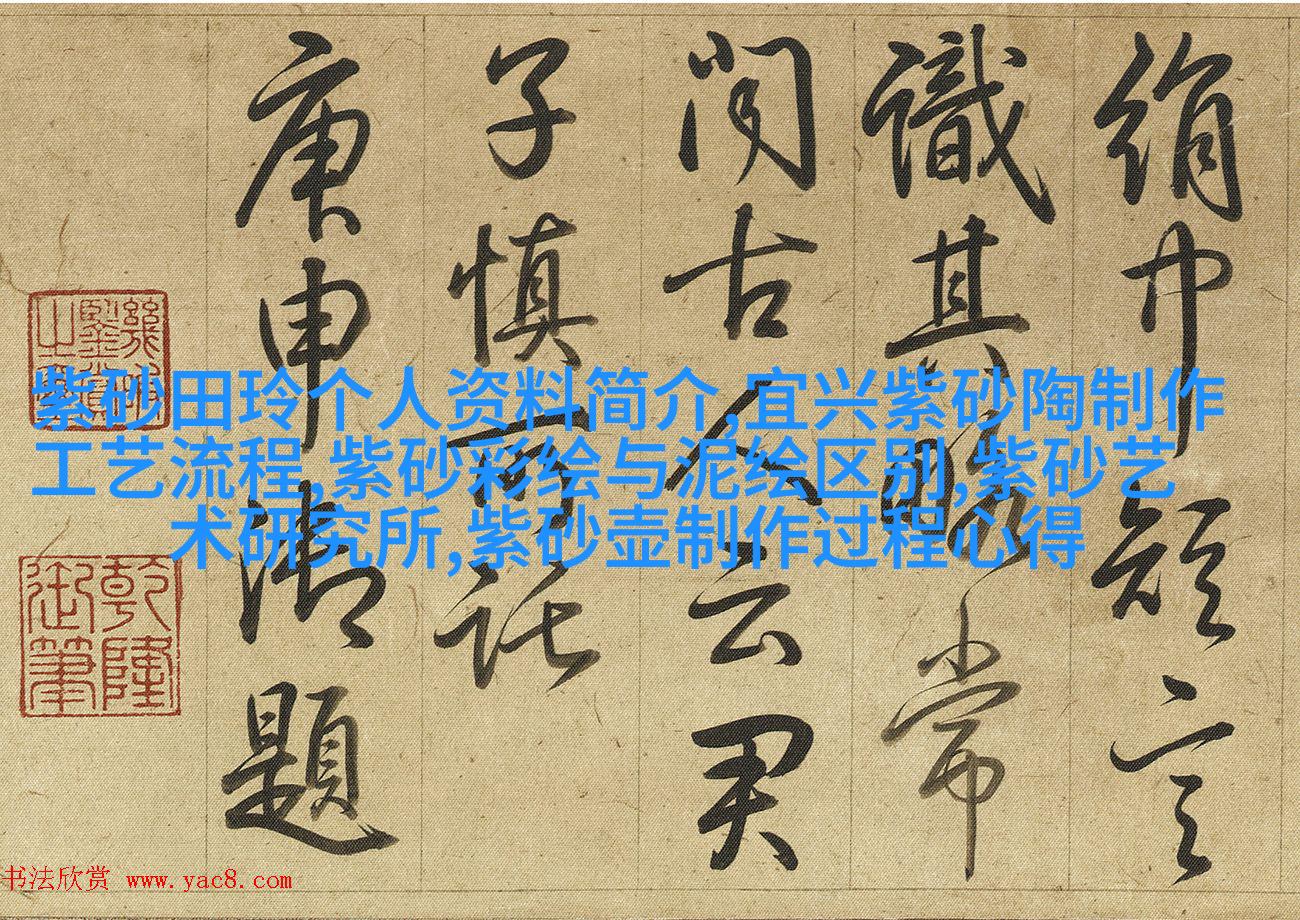 紫砂田玲个人资料简介,宜兴紫砂陶制作
工艺流程,紫砂彩绘与泥绘区别,紫砂艺
术研究所,紫砂壶制作过程心得
絹 言
識其 常
聞古人云君
子慎所託
庚申御題
幾暇鑒賞之璽
乾隆御筆
书法欣赏 www.yac8.com